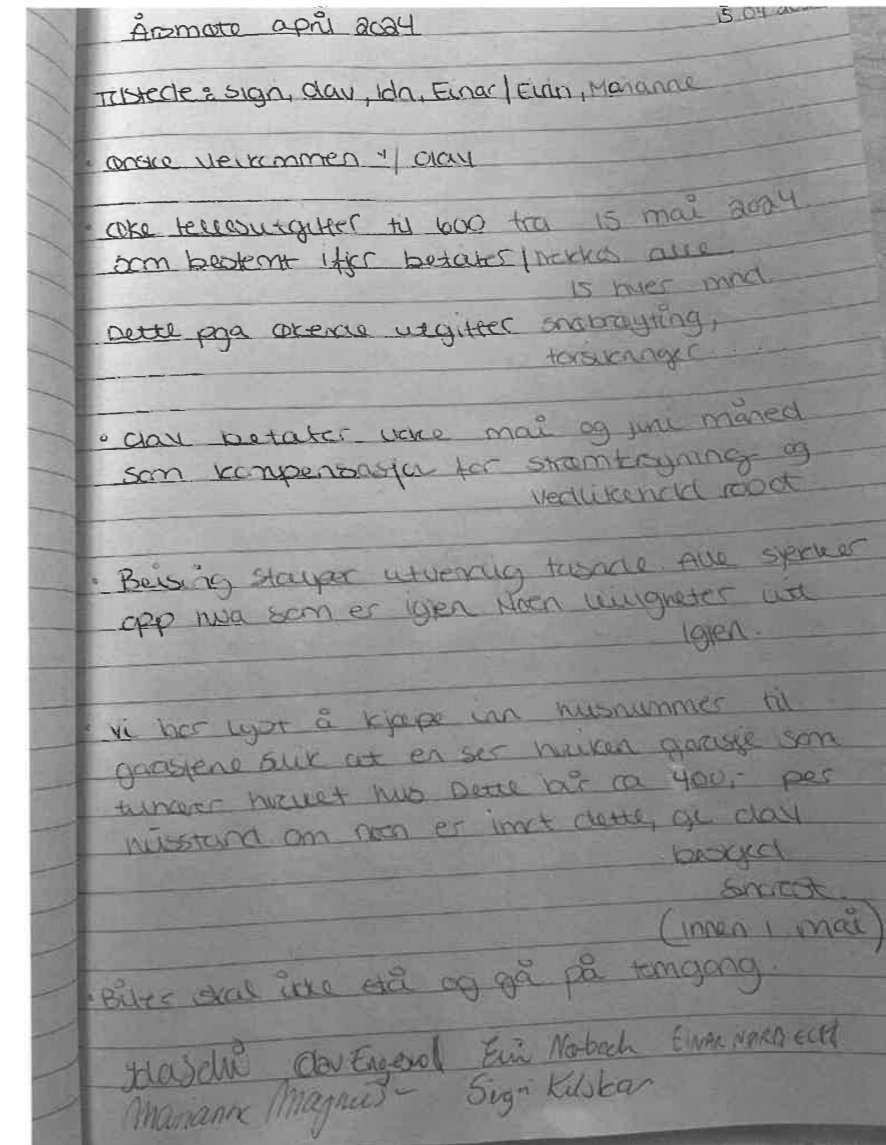 Årsmøte april 2024
15.04
Tilstede: Sign, Olav, Ida, Einar/Eirin, Marianne
• ønske velkommen v/ Olav
• øke fellesutgifter til 600 fra 15 mai 2024
som bestemt ifjor betaler/trekkes alle
15 hver mnd
Dette pga økende utgifter snøbrøyting,
forsikringer....
• Olav betaler ikke mai og juni måned
som kompensasjon for strømkryning og
vedlikehold robot
• Beising stolper utvendig fasade. Alle sjekker
opp hva som er igjen Noen leiligheter litt
igjen.
• Vi har lyst å kjøpe inn husnummer til
garasjene slik at en ser hvilken garasje som
tilhører hvilket hus Dette blir ca 400,- per
husstand om noen er imot dette, gi Olav
beskjed
snarest.
(innen 1 mai)
• Biler skal ikke stå og gå på tomgang.
Olav Engevol Eirin Nørbech EINAR NØRBECH
Marianne Magnus Sign Kilskar